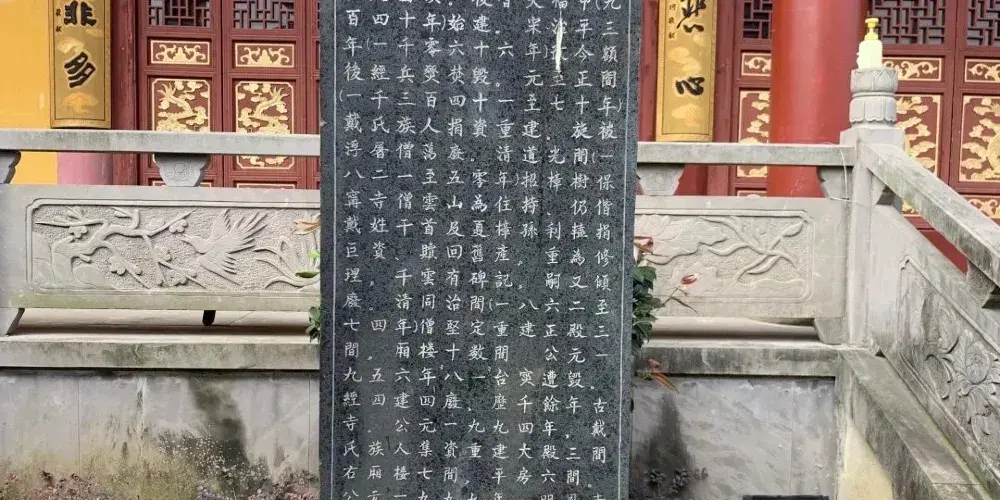 九三頭閩年被(一保僧捐修傾至三一.古戴間.
平今正十旋閩樹仍桂為又二殿元毀年,三間
福治 至七、光樟、利重嗣六正公遭餘年殿六明
文宋年元至建道招持孫,八建 突千四大房
六.一重清年住樟產記一重間台歷九建平年
後建十毀十資.零為夏舊碑間定數一、九重.
始六焚四捐廢五山及回有治堅十八廢一資間九
年零 百人蕩至雲首 雲同僧樓年四元集七九
山十千兵三族僧一僧千、千清年廂六建公人樓一
元四一經千氏屠二寺姓資.四.五四.族廂元
百年後(一戴浮八寗戴巨理廢七間九經寺氏右公
心
非多